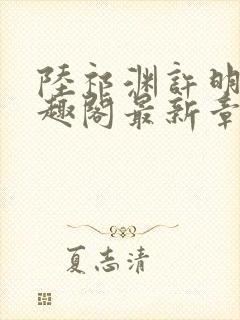 陸祁渊許明
趣閣最新章
夏志清